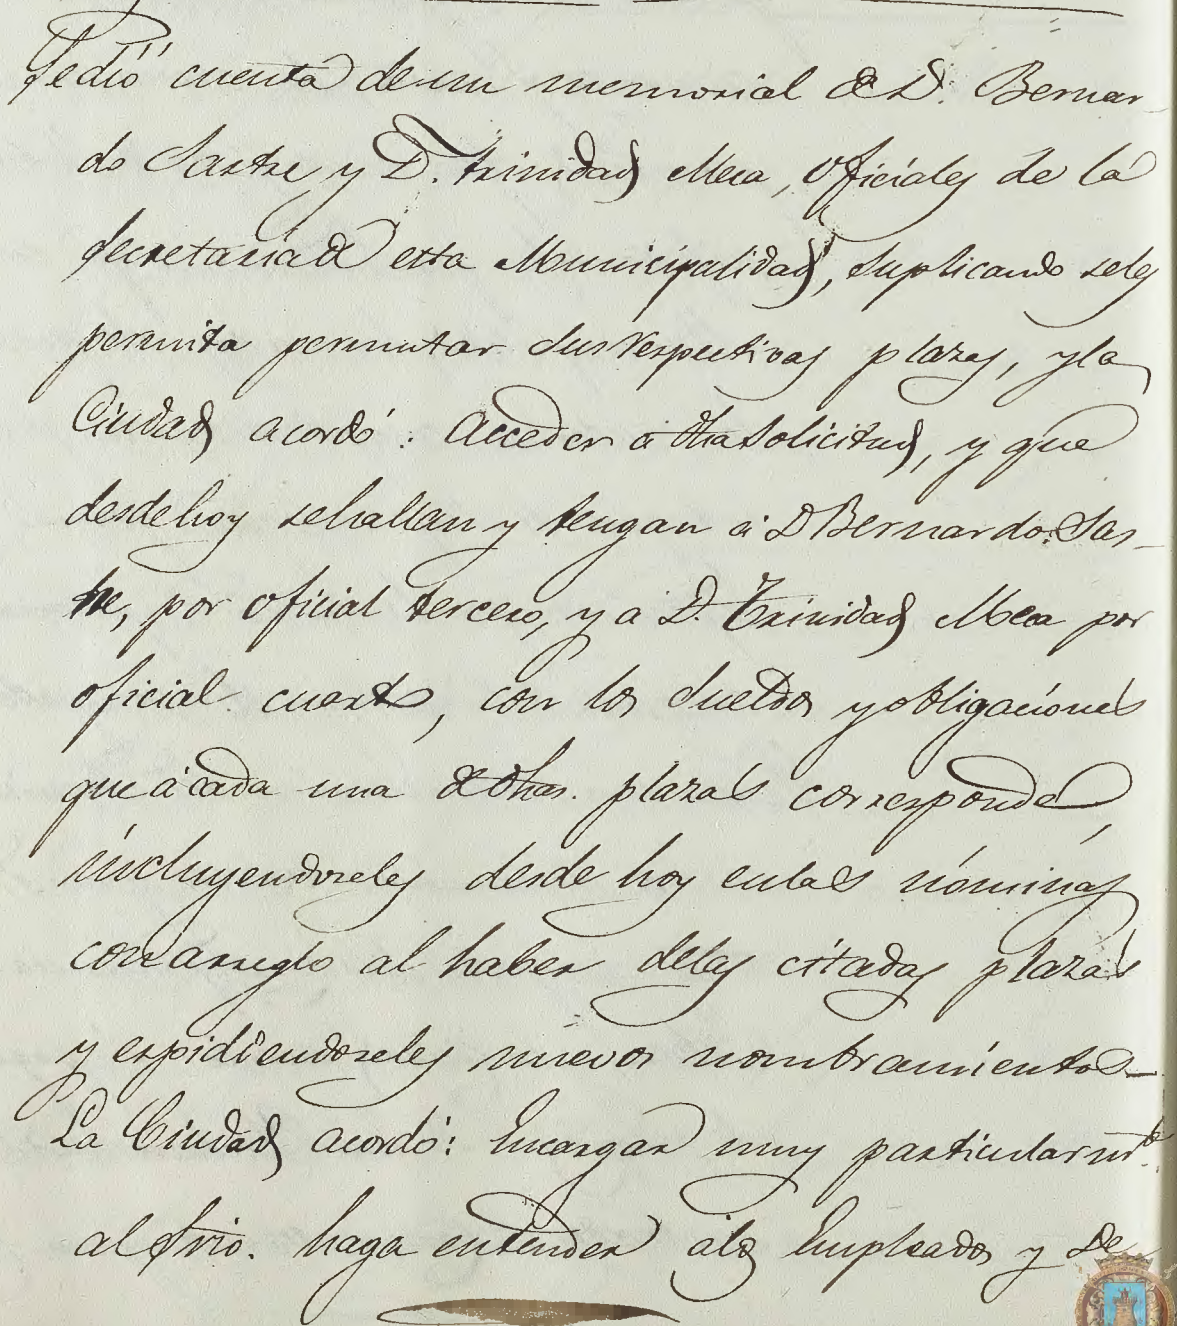 Se dió cuenta de un memorial de D. Bernar-
do Sastre y D. Trinidad Meca, oficiales de la
Secretaria de esta Municipalidad, suplicando seles
permita permutar sus respectivas plazas, y la
Ciudad acordó: Acceder á dha solicitud, y que
desde hoy se hallan y tengan á D Bernardo Sas-
tre, por oficial tercero, y á D. Trinidad Meca por
oficial cuarto, con los sueldos y obligaciones
que á cada una de dhas. plazas corresponde,
incluyendoseles desde hoy en las nóminas
con arreglo al haber de las citadas plazas
y espidiendoseles nuevos nombramientos_
La Ciudad acordó: Encargar muy particularmte.
al Srio. haga entender á los Empleados y De